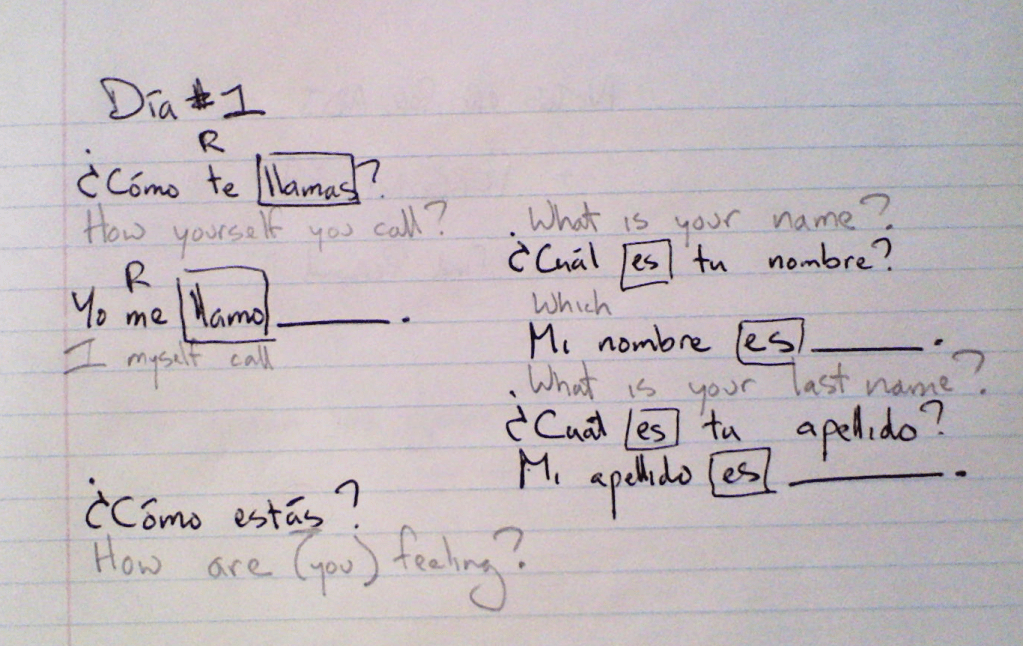 Día #1
R
¿Cómo te llamas?
How yourself you call?
R
Yo me llamo ______.
I myself call
What is your name?
¿Cuál es tu nombre?
Which
Mi nombre es ______.
What is your last name?
¿Cuál es tu apellido?
Mi apellido es ______.
¿Cómo estás?
How are (you) feeling?